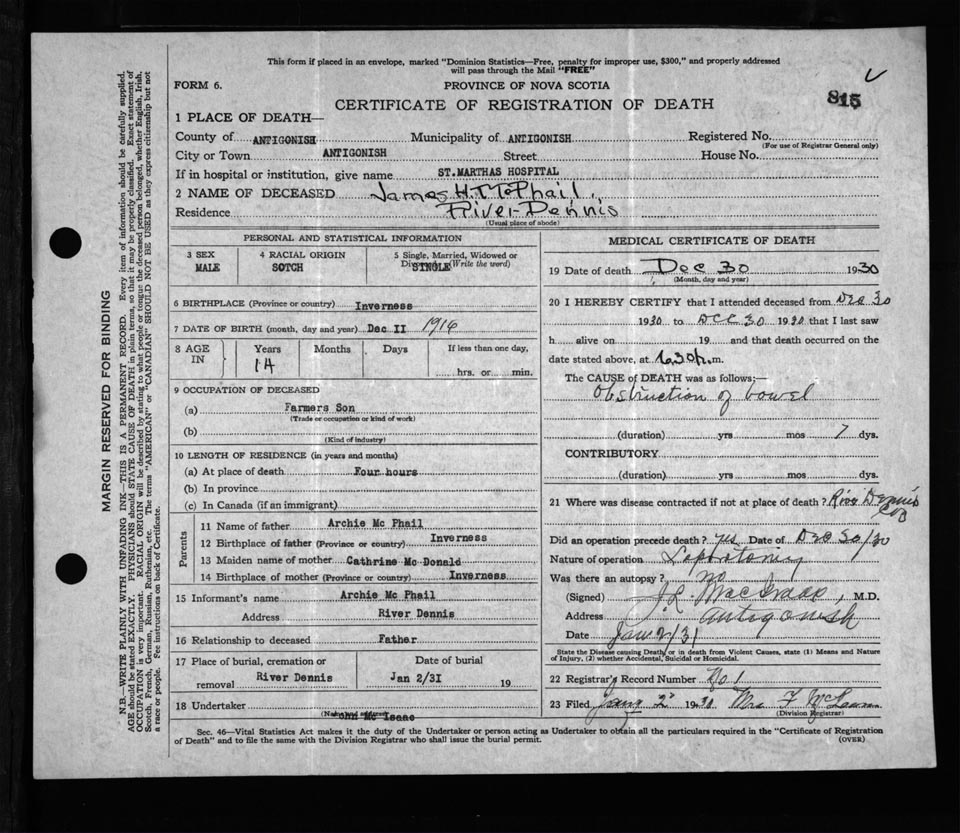 This form if placed in an envelope, marked "Dominion Statistics—Free, penalty for improper use, $300," and properly addressed
will pass through the Mail "FREE"
FORM 6. PROVINCE OF NOVA SCOTIA
815
CERTIFICATE OF REGISTRATION OF DEATH
1 PLACE OF DEATH—
County of ANTIGONISH Municipality of ANTIGONISH Registered No.
(For use of Registrar General only)
City or Town ANTIGONISH Street House No.
If in hospital or institution, give name ST.MARTHAS HOSPITAL
2 NAME OF DECEASED James H. McPhail,
Residence River Dennis
(Usual place of abode)
PERSONAL AND STATISTICAL INFORMATION
3 SEX 4 RACIAL ORIGIN 5 Single, Married, Widowed or
Divorced (Write the word)
MALE SOTCH SINGLE
6 BIRTHPLACE (Province or country) Inverness
7 DATE OF BIRTH (month, day and year) Dec II 1916
8 AGE IN Years Months Days If less than one day,
14 hrs. or min.
9 OCCUPATION OF DECEASED
(a) Farmers Son
(Trade or occupation or kind of work)
(b)
(Kind of industry)
10 LENGTH OF RESIDENCE (in years and months)
(a) At place of death Four hours
(b) In province
(c) In Canada (if an immigrant)
Parents
11 Name of father Archie Mc Phail
12 Birthplace of father (Province or country) Inverness
13 Maiden name of mother Cathrine Mc Donald
14 Birthplace of mother (Province or country) Inverness
15 Informant's name Archie Mc Phail
Address River Dennis
16 Relationship to deceased Father
17 Place of burial, cremation or Date of burial
removal River Dennis Jan 2/3I 19
18 Undertaker
John Mc Isaac
MEDICAL CERTIFICATE OF DEATH
19 Date of death Dec 30 1930
(Month, day and year)
20 I HEREBY CERTIFY that I attended deceased from Dec 30
1930 to Dec 30 1930 that I last saw
h alive on 19 and that death occurred on the
date stated above, at 6.30 p.m.
The CAUSE of DEATH was as follows:—
Obstruction of bowel
(duration) yrs mos 7 dys.
CONTRIBUTORY
(duration) yrs mos dys.
21 Where was disease contracted if not at place of death? River Dennis
CB
Did an operation precede death? yes Date of Dec 30/30
Nature of operation Laparotomy
Was there an autopsy? no
(Signed) J.L. M.D.
Address Antigonish
Date Jan 2/31
State the Disease causing Death, or in death from Violent Causes, state (1) Means and Nature
of Injury, (2) whether Accidental, Suicidal or Homicidal.
22 Registrar's Record Number No 1
23 Filed Jany 2 1930 Mrs F
(Division Registrar)
Sec. 46—Vital Statistics Act makes it the duty of the Undertaker or person acting as Undertaker to obtain all the particulars required in the "Certificate of Registration
of Death" and to file the same with the Division Registrar who shall issue the burial permit. (OVER)
MARGIN RESERVED FOR BINDING
N.B.—WRITE PLAINLY WITH UNFADING INK—THIS IS A PERMANENT RECORD. Every item of information should be carefully supplied.
AGE should be stated EXACTLY. PHYSICIANS should STATE CAUSE OF DEATH in plain terms, so that it may be properly classified. Exact statement of
OCCUPATION is very important. RACIAL ORIGIN will be described by stating to what people or tongue the deceased person belonged, whether English, Irish,
Scotch, French, German, Russian, Ruthenian, etc. The terms "AMERICAN" or "CANADIAN" SHOULD NOT BE USED as they express citizenship but not
a race or people. Fee instructions on back of Certificate.